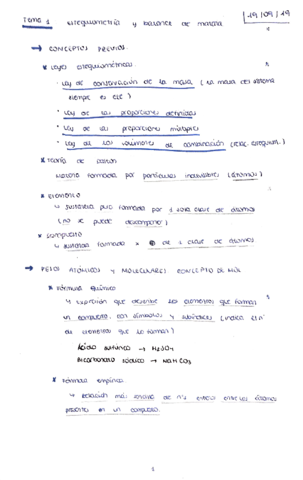 Tema 1 estequiometría y balance de materia 19/09/19
→ CONCEPTOS PREVIOS.
* Leyes estequiométricas.
· Ley de conservación de la masa (la masa del sistema
siempre es cte)
· Ley de las proporciones definidas
· Ley de las proporciones múltiples
· Ley de los volúmenes de combinación (
* Teoría de
Materia formada por partículas indivisibles (átomos)
* Elemento
↳ sustancia pura formada por 1 sola clase de átomos
(no se puede descomponer)
* Compuesto
↳ sustancia formada > de 1 clase de átomos
→ PESOS ATÓMICOS Y MOLECULARES CONCEPTO DE MOL
* Fórmula química
↳ Expresión que describe los elementos que forman
un compuesto, con símbolos y subíndices (indica el nº
de elementos que lo forman)
Ácido sulfúrico → H₂SO₄
Bicarbonato sódico → NaHCO₃
* Fórmula empírica
↳ Relación más sencilla de nºs enteros entre los átomos
presentes en un compuesto.